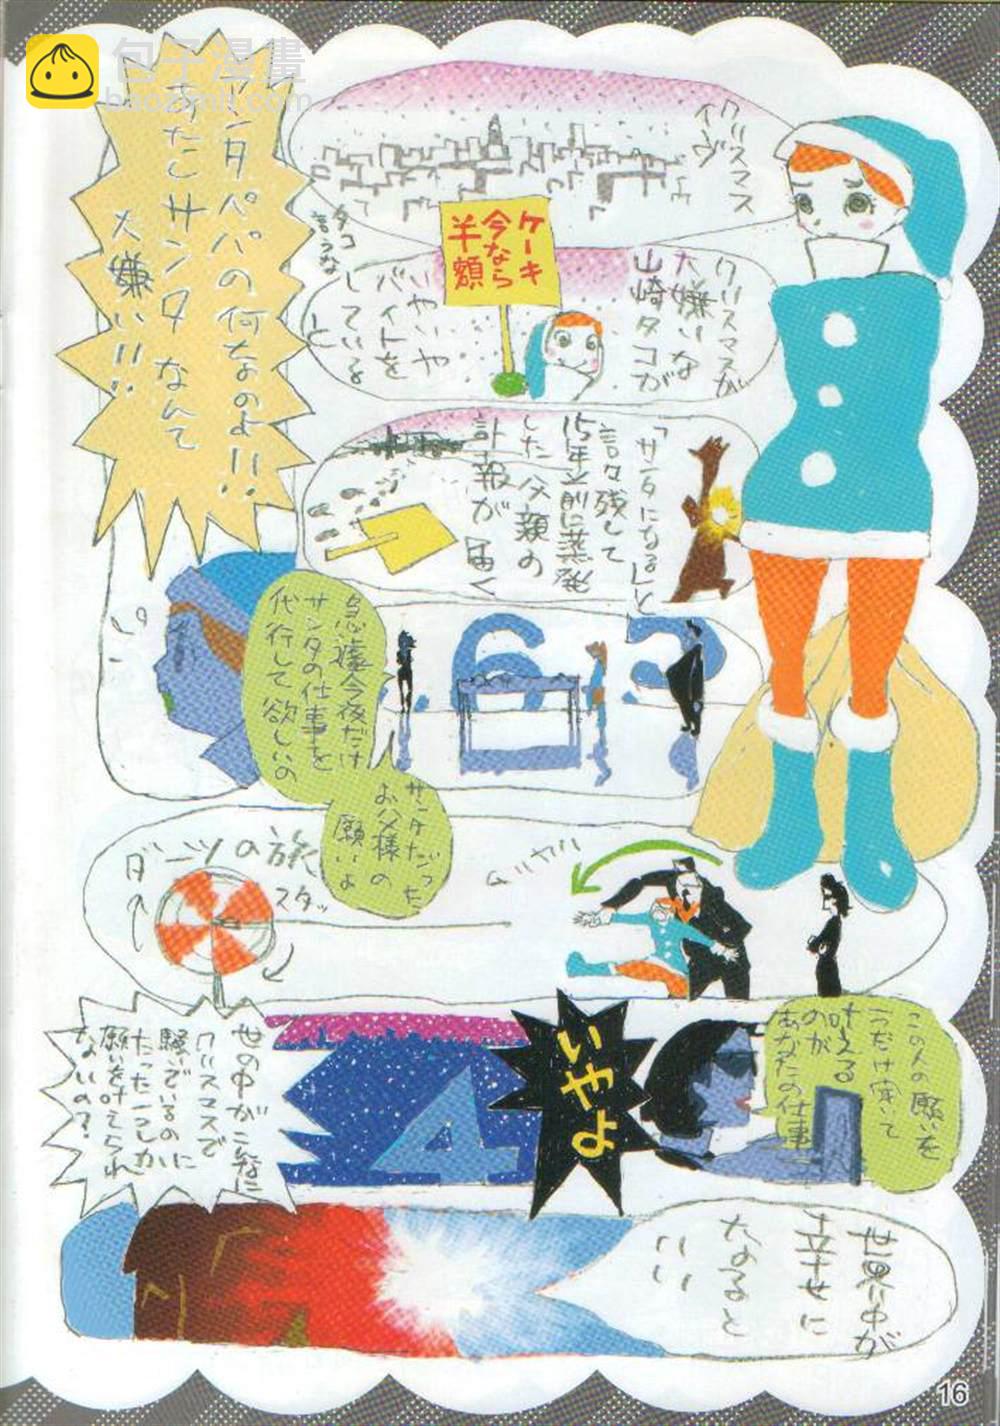 クリスマス
イヴ
クリスマスが
大嫌いな
山崎タコが
ケーキ
今なら
半額
いやいや
バイトを
している
と
タコ
言うな
「サンタになる」と
言い残して
15年前に蒸発
した父親の
訃報が届く
急遽今夜だけ
サンタの仕事を
代行して欲しいの
サンタだった
お父様の
願いよ
サンタパパの何なのよ!!
あたしサンタなんて
大嫌い!!
ダーツの旅
スタッ
この人の願いを
1つだけ聞いて
叶える
のが
あなたの仕事
いやよ
4
世の中がこんなに
クリスマスで
騒いでいるのに
たった一つしか
願いを叶えられ
ないの?
世界中が
幸せに
なると
いい
16
包子漫畫
baozimh.com